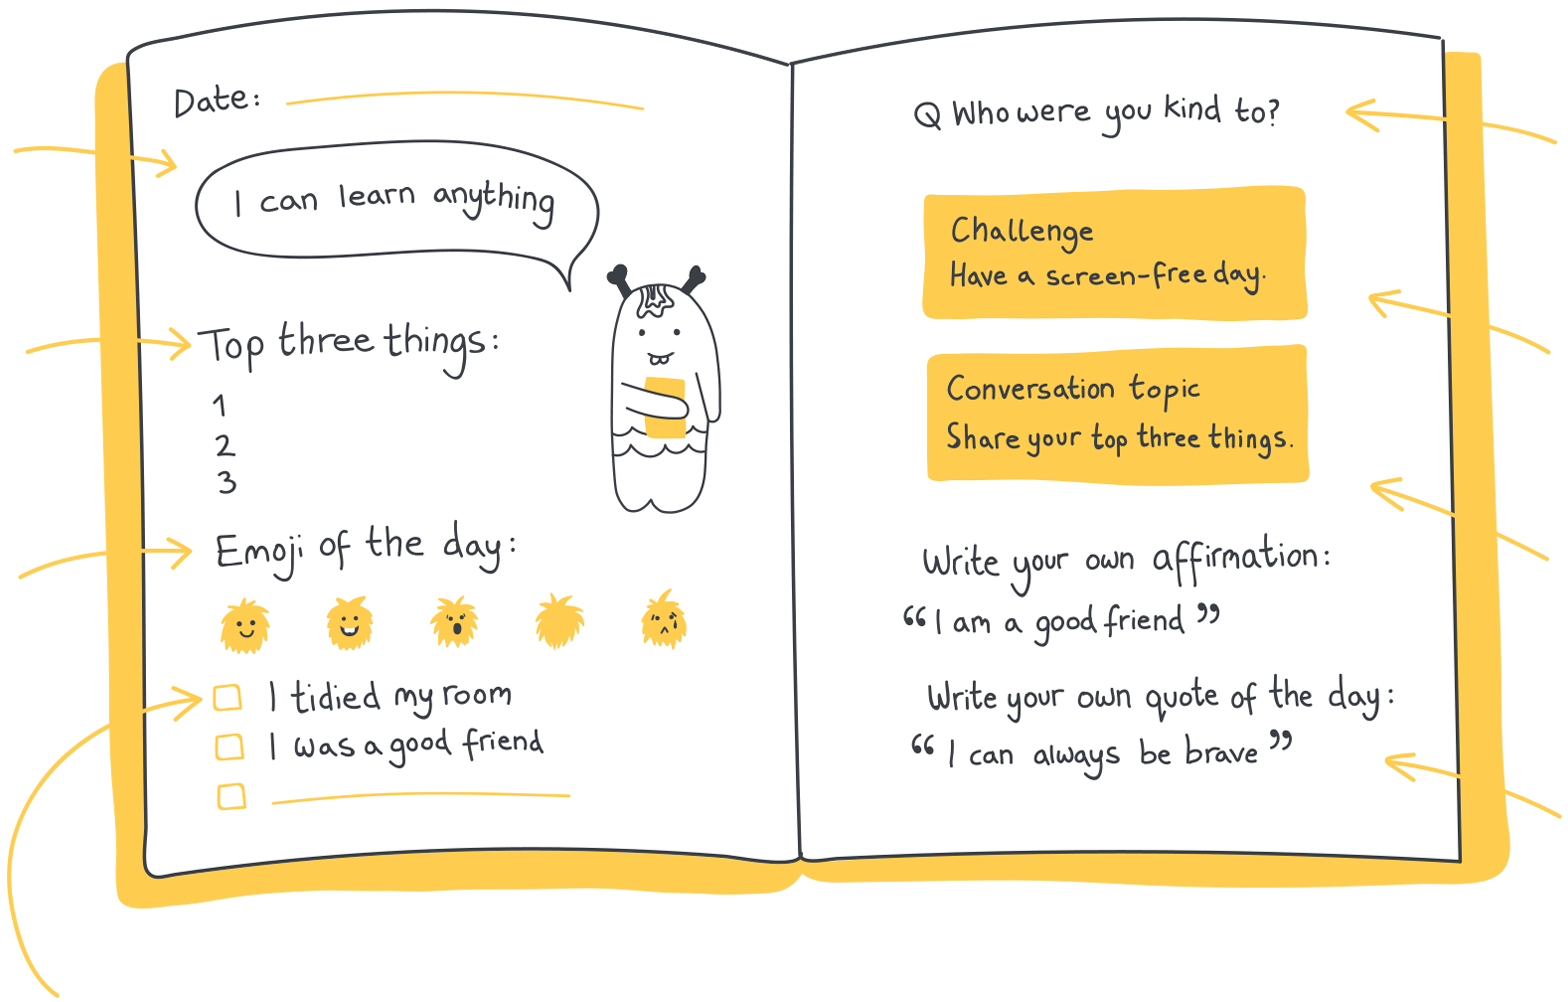 Date:
I can learn anything
Top three things:
1
2
3
Emoji of the day:
I tidied my room
I was a good friend
Q Who were you kind to?
Challenge
Have a screen-free day.
Conversation topic
Share your top three things.
Write your own affirmation:
“I am a good friend”
Write your own quote of the day:
“I can always be brave”